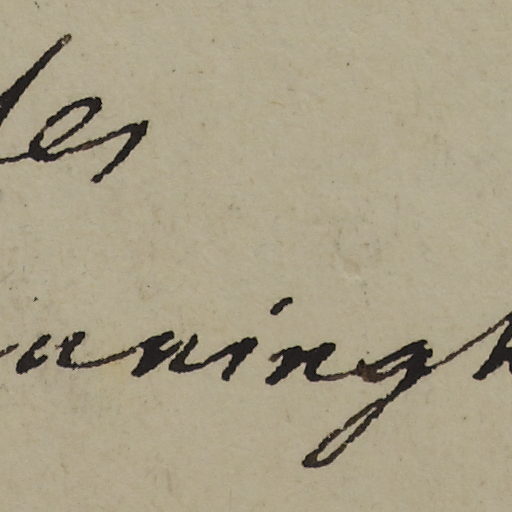 les
unningh